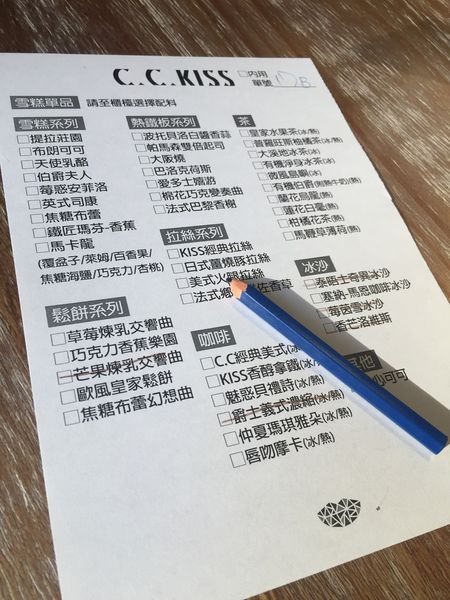 C.C.KISS
□內用
單號 B
雪糕單品 請至櫃檯選擇配料
雪糕系列
□提拉莊園
□布朗可可
□天使乳酪
□伯爵夫人
□莓惑安菲洛
□英式司康
□焦糖布蕾
□鐵匠瑪芬-香蕉
□馬卡龍
(覆盆子/萊姆/百香果/
焦糖海鹽/巧克力/杏桃)
鬆餅系列
□草莓煉乳交響曲
□巧克力香蕉樂園
□芒果煉乳交響曲
□歐風皇家鬆餅
□焦糖布蕾幻想曲
熱鐵板系列
□波托貝洛白醬香蒜
□帕馬森雙倍起司
□大阪燒
□巴洛克荷斯
□愛多士嬉游
□棉花巧克變奏曲
□法式巴黎香榭
拉絲系列
□KISS經典拉絲
□日式薑燒豚拉絲
□美式火腿拉絲
□法式 佐香草
咖啡
□C.C經典美式(冰
□KISS香醇拿鐵(
□魅惑貝禮詩(冰/
□爵士義式濃縮(冰/熱)
□仲夏瑪琪雅朵(冰/熱)
□唇吻摩卡(冰/熱)
茶
□皇家水果茶(冰/熱)
□普羅旺斯柚橘茶(冰/熱)
□大溪地冰茶(冰)
□有機淨身冰茶(冰)
□微風島嶼(冰)
□有機伯爵(附熱牛奶)(熱)
□蘭花烏龍(熱)
□蓮花日蘭(熱)
□柑橘花茶(熱)
□馬鞭草薄荷(熱)
冰沙
□泰爵士奇異冰沙
□塞納-馬恩咖啡冰沙
□莓茵雪冰沙
□香芒洛維斯
其他
心可可